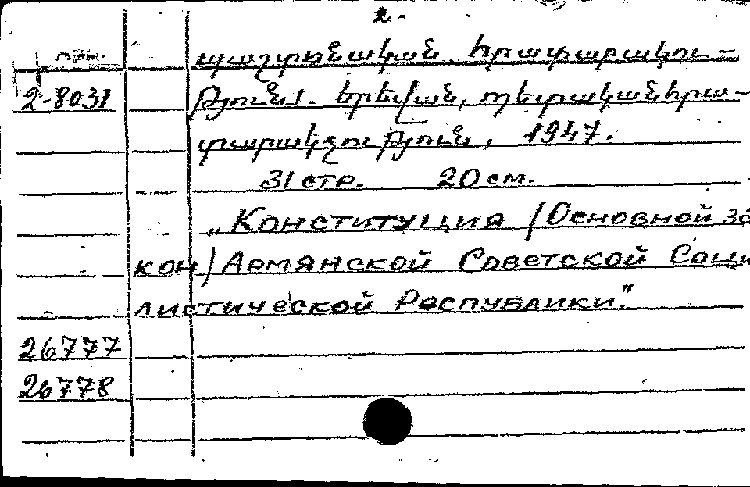 2.
պաշտոնական հրատարակու-
2-8031 թյուն։ Երևան, պետական հրա-
տարակչություն, 1947.
31 стр. 20 см.
„Конституция (Основной за
кон) Армянской Советской Соци
листической Республики".
26777
26778